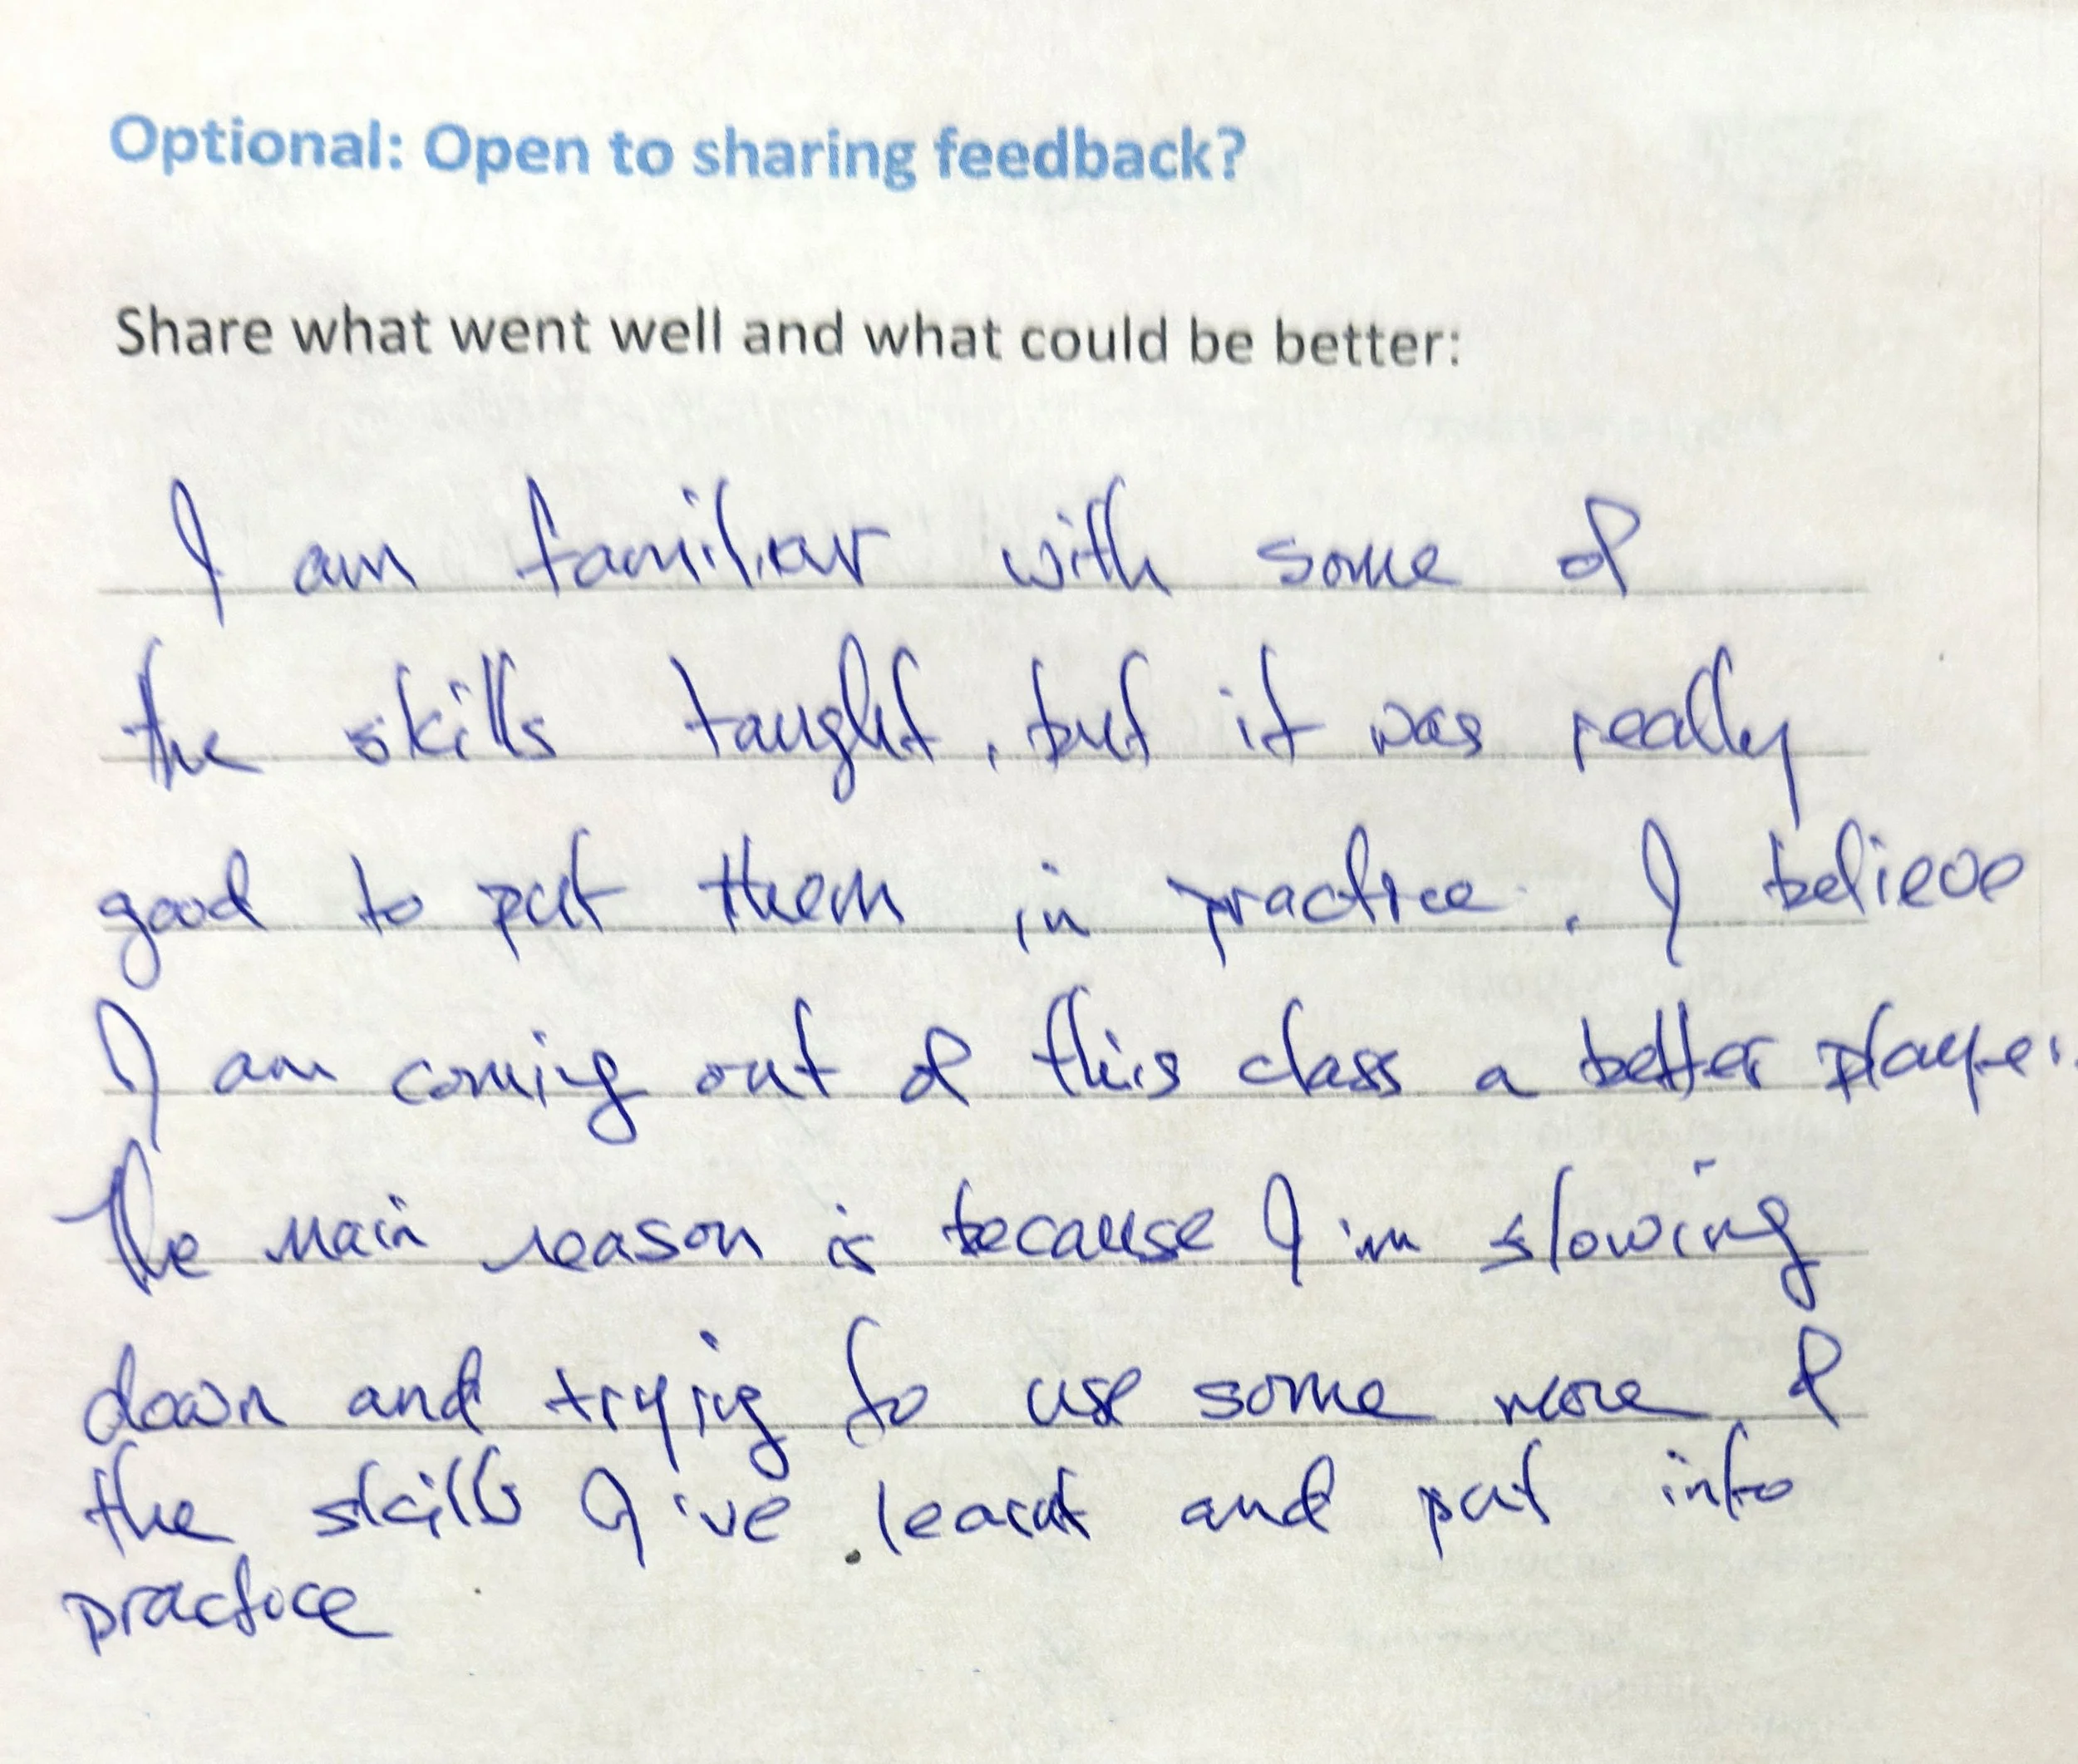 Optional: Open to sharing feedback?
Share what went well and what could be better:
I am familiar with some of
the skills taught, but it was really
good to put them in practice. I believe
I am coming out of this class a better player.
The main reason is because I'm slowing
down and trying to use some more of
the skills I've learnt and put into
practice